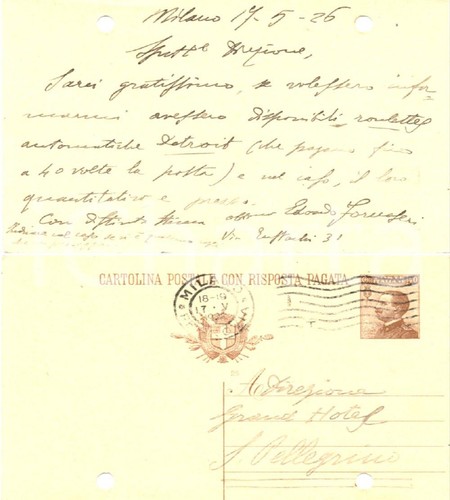 Milano 17-5-26
Spett.le Direzione,
Sarei gratissimo, se volessero infor-
marmi avessero disponibili roulettes
automatiche Detroit (che pagano fino
a 40 volte la posta) e nel caso, il loro
quantitativo e prezzo.
Con distinta stima
Via Eustachi 31
CARTOLINA POSTALE CON RISPOSTA PAGATA
MIL
18-19
17 V
A Direzione
Grand Hotel
S. Pellegrino